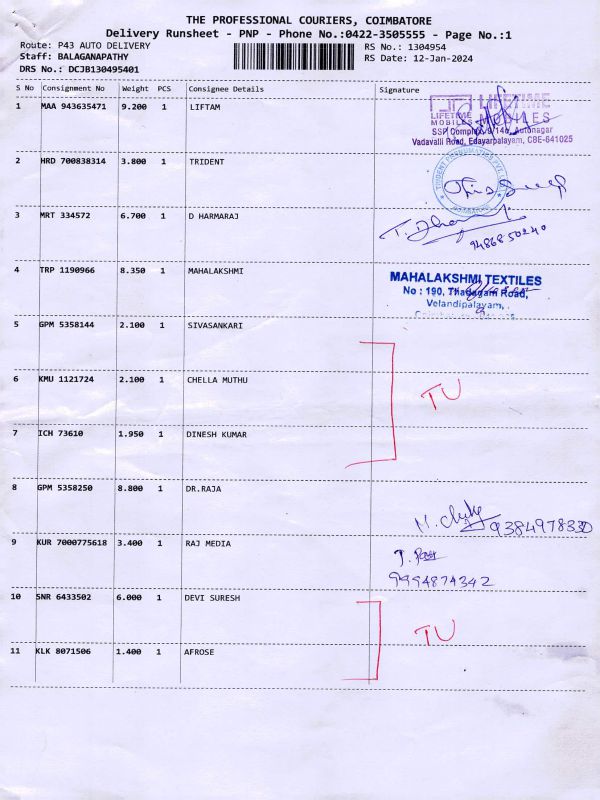 THE PROFESSIONAL COURIERS, COIMBATORE
Delivery Runsheet - PNP - Phone No.:0422-3505555 - Page No.:1
Route: P43 AUTO DELIVERY
RS No.: 1304954
Staff: BALAGANAPATHY
RS Date: 12-Jan-2024
DRS No.: DCJB130495401
S No Consignment No Weight PCS Consignee Details Signature
1 MAA 943635471 9.200 1 LIFTAM
LIFETIME MOBILES
LIFETIME
MOBILES
Vadavalli Road, Edayarpalayam, CBE-641025
2 HRD 700838314 3.800 1 TRIDENT
3 MRT 334572 6.700 1 D HARMARAJ
9486850240
4 TRP 1190966 8.350 1 MAHALAKSHMI
MAHALAKSHMI TEXTILES
No : 190, Thadagam Road,
Velandipalayam,
5 GPM 5358144 2.100 1 SIVASANKARI
6 KMU 1121724 2.100 1 CHELLA MUTHU
TU
7 ICH 73610 1.950 1 DINESH KUMAR
8 GPM 5358250 8.800 1 DR.RAJA
9384978330
9 KUR 7000775618 3.400 1 RAJ MEDIA
9994874342
10 SNR 6433502 6.000 1 DEVI SURESH
TU
11 KLK 8071506 1.400 1 AFROSE